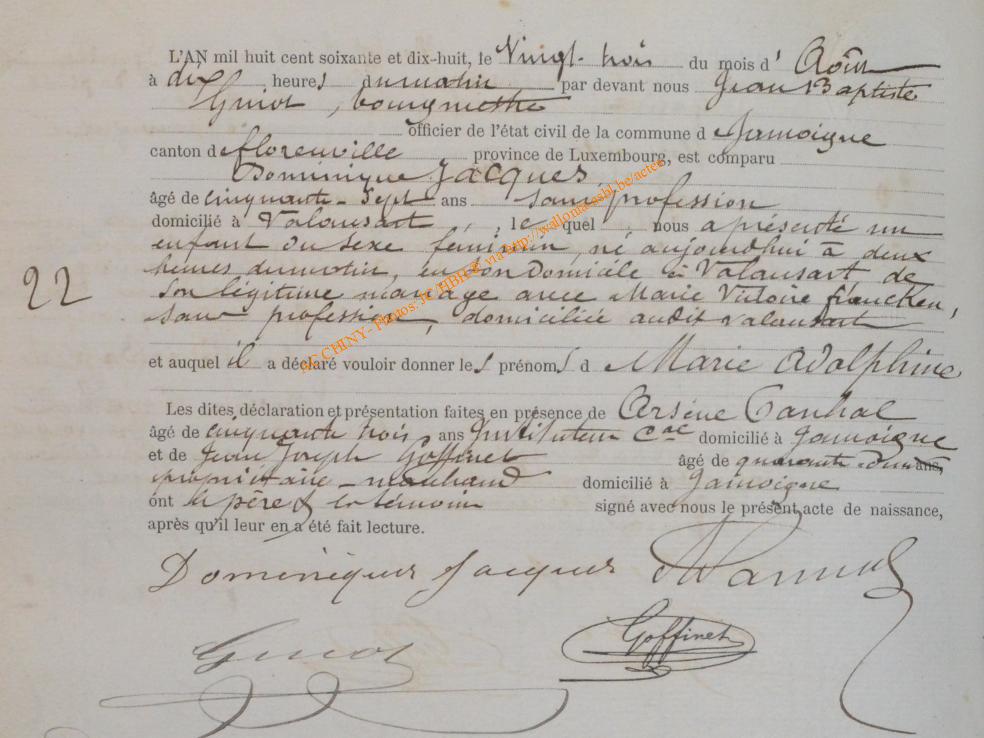 L'AN mil huit cent soixante et dix-huit, le Vingt-trois du mois d' Août
à dix heures du matin par devant nous Jean Baptiste
Guiot, bourgmestre
officier de l'état civil de la commune d Jamoigne
canton d florenville province de Luxembourg, est comparu
Dominique Jacques
âgé de cinquante-sept ans sans profession
domicilié à Valansart, le quel, nous a présenté un
enfant du sexe feminin, né aujourdhui à deux
heures du matin, en son Domicile à Valansart, de
22
son légitime mariage avec Marie Victoire
sans profession, domiciliée audit Valansart
et auquel il a déclaré vouloir donner les prénoms d Marie Adolphine
Les dites déclaration et présentation faites en présence de Arsène
âgé de cinquante trois ans Instituteur cal domicilié à Jamoigne
et de Jean Joseph Goffinet âgé de quarante-deux ans,
propriétaire-marchand domicilié à Jamoigne
ont le père & les témoins signé avec nous le présent acte de naissance,
après qu'il leur en a été fait lecture.
Dominique Jacques
Guiot
Goffinet
AC CHINY - Photos: TC/HBH © via http://wallonia.asbl.be/actes